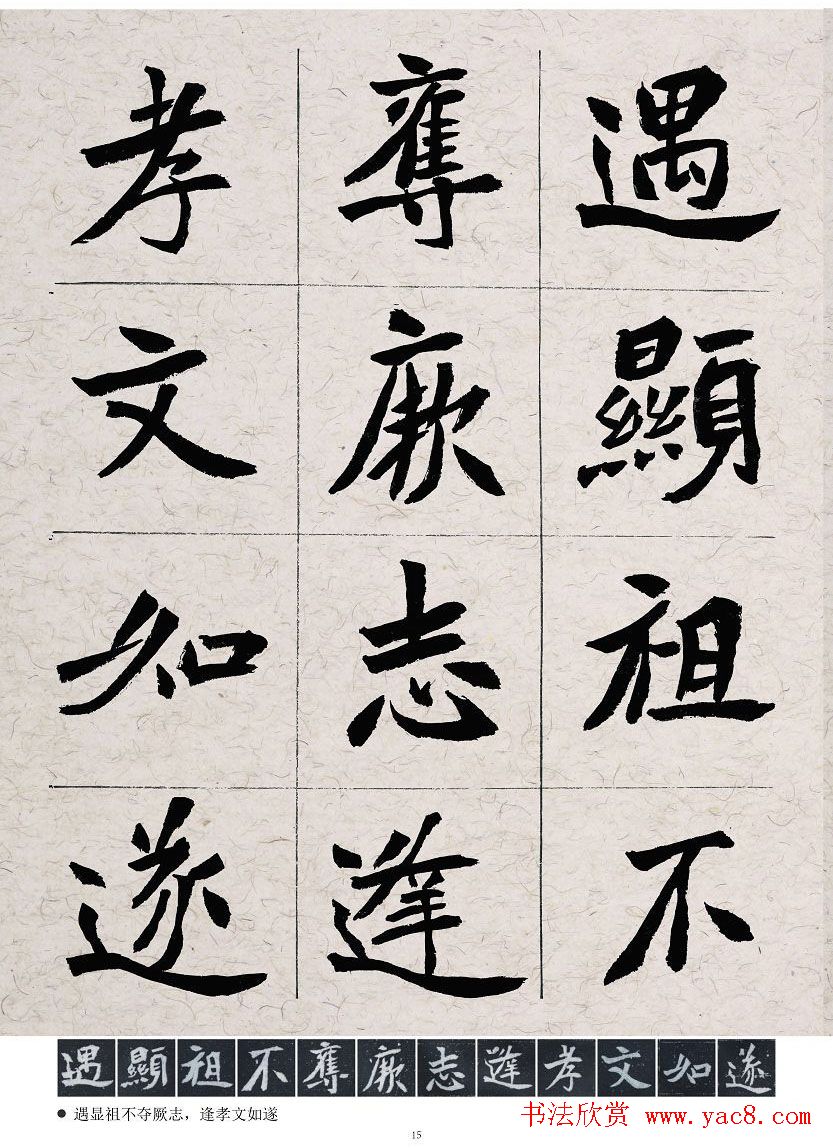 遇顯祖不
奪厥志逢
孝文如遂
遇顯祖不奪厥志逢孝文如遂
● 遇显祖不夺厥志，逢孝文如遂
书法欣赏 www.yac8.com
15